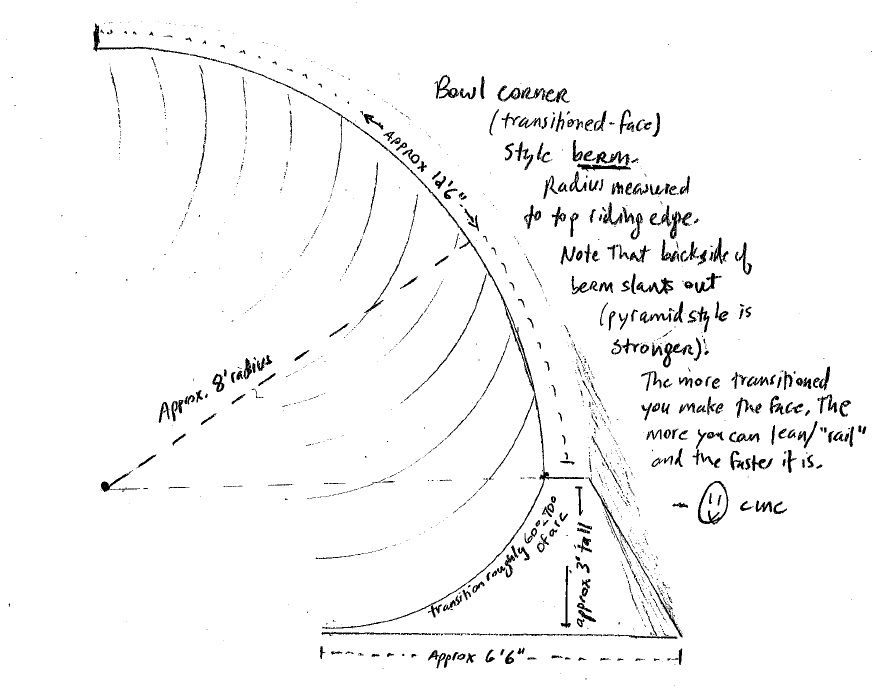 Bowl corner
(transitioned-face)
style berm.
Radius measured
to top riding edge.
Note That backside of
berm slants out
(pyramid style is
stronger).
The more transitioned
you make the face, The
more you can lean/"rail"
and the faster it is.
- cmc
Approx 12'6"
Approx. 8' radius
transition roughly 60°-70°
of arc
approx 3' tall
Approx 6'6"